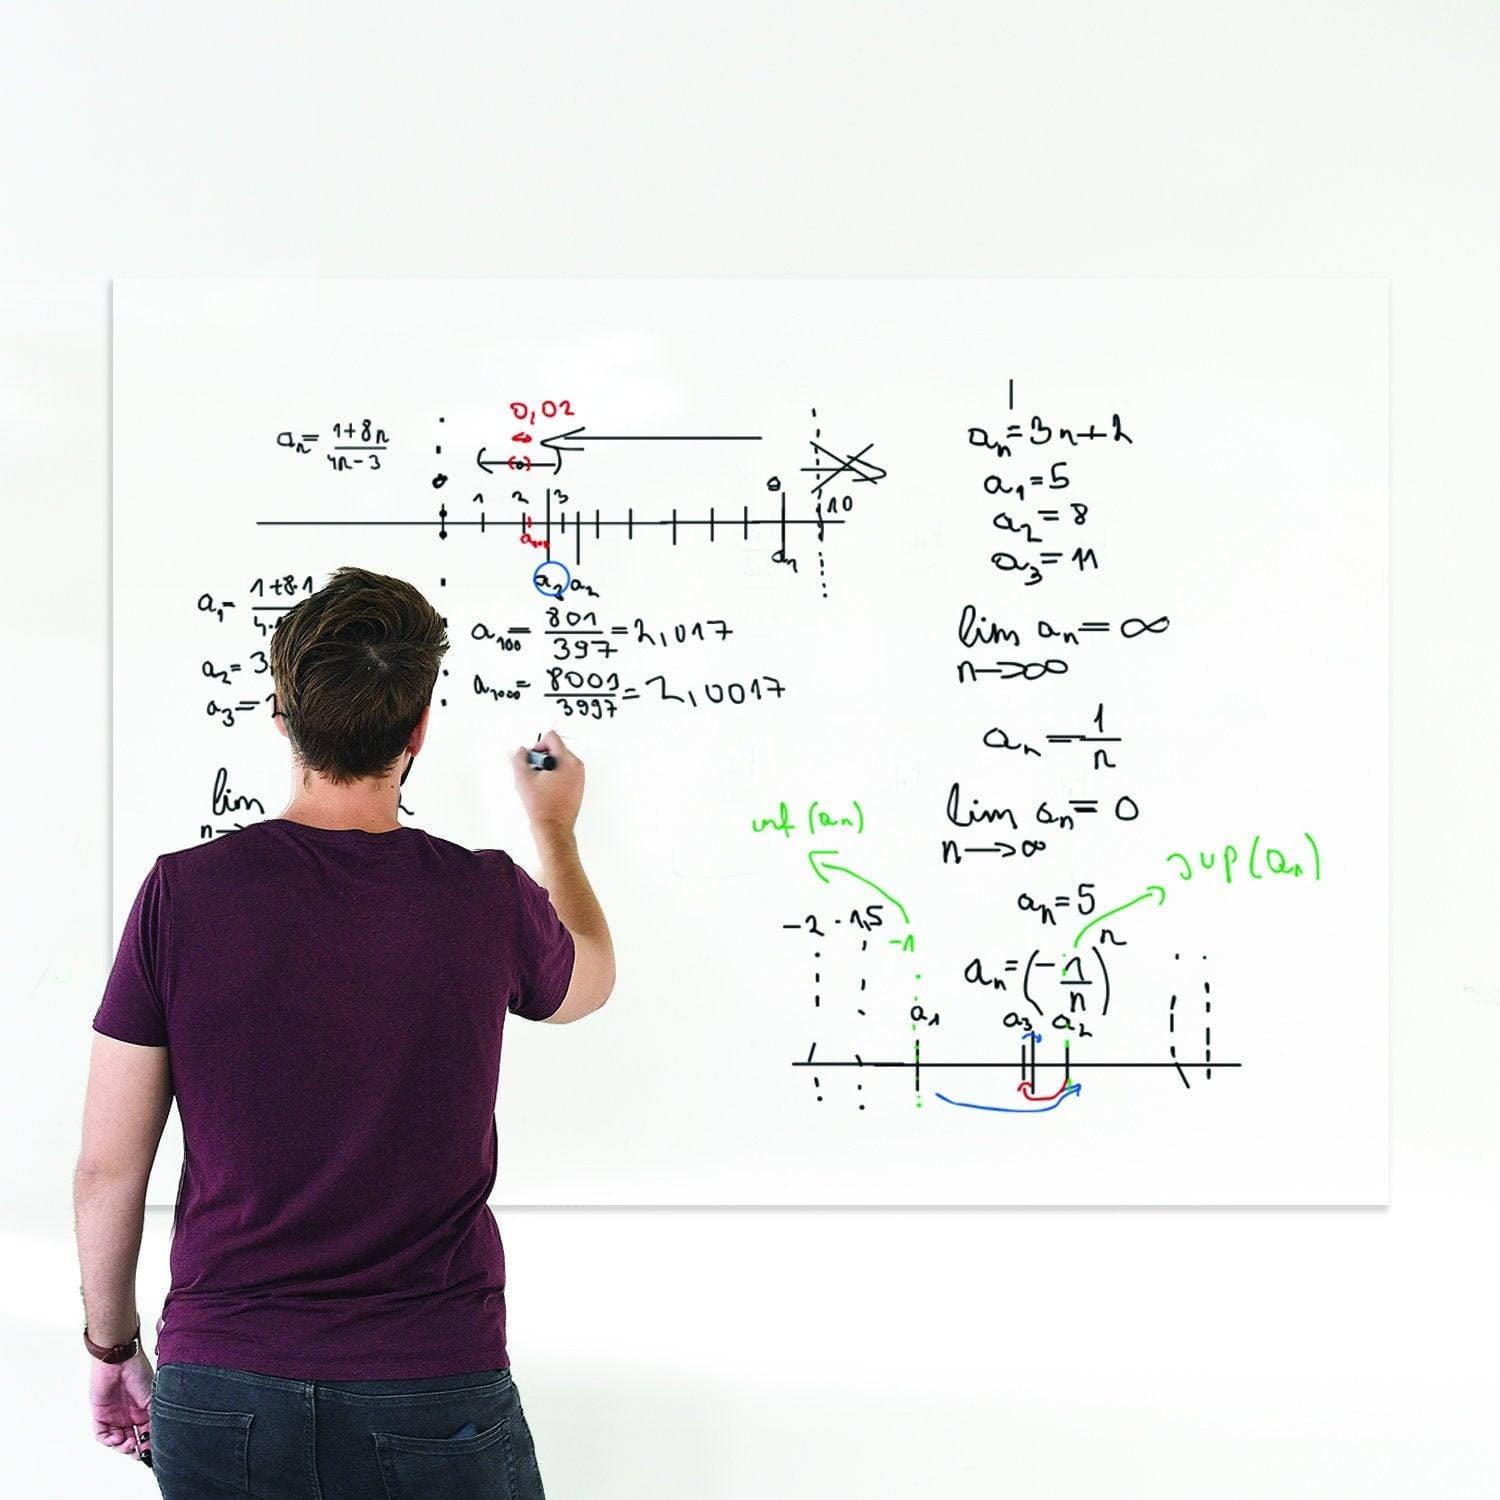 aₙ = (1+8n)/(4n-3)
0,02
1 2 3 9
10
aₙ
a₃ a₂
a₁ = 1+8·1
a₂ = 3
a₃ =
a₁₀₀ = 801/397 = 2,017
a₁₀₀₀ = 8001/3997 = 2,0017
lim
n→
aₙ = 3n+2
a₁ = 5
a₂ = 8
a₃ = 11
lim aₙ = ∞
n→∞
aₙ = 1/n
lim aₙ = 0
n→∞
inf (aₙ)
sup (aₙ)
aₙ = 5
-2 -1,5 -1
aₙ = (-1/n)ⁿ
a₁ a₃ a₂